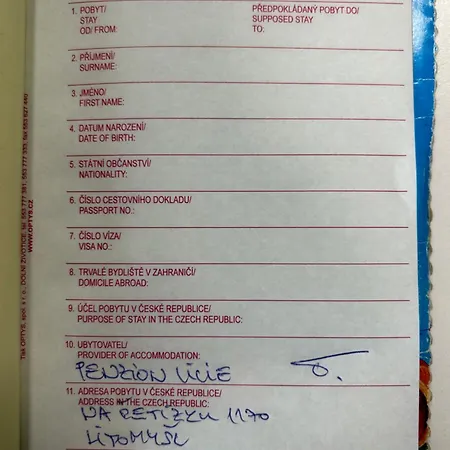 1. POBYT/ PŘEDPOKLÁDANÝ POBYT DO/
STAY SUPPOSED STAY
OD/ FROM: TO:
2. PŘIJMENÍ/
SURNAME:
3. JMÉNO/
FIRST NAME:
4. DATUM NAROZENÍ/
DATE OF BIRTH:
5. STÁTNÍ OBČANSTVÍ/
NATIONALITY:
6. ČÍSLO CESTOVNÍHO DOKLADU/
PASSPORT NO.:
7. ČÍSLO VÍZA/
VISA NO.:
8. TRVALÉ BYDLIŠTĚ V ZAHRANIČÍ/
DOMICILE ABROAD:
9. ÚČEL POBYTU V ČESKÉ REPUBLICE/
PURPOSE OF STAY IN THE CZECH REPUBLIC:
10. UBYTOVATEL/
PROVIDER OF ACCOMMODATION:
PENZION LILIE
11. ADRESA POBYTU V ČESKÉ REPUBLICE/
ADDRESS IN THE CZECH REPUBLIC:
NA ŘETÍZKU 1170
LITOMYŠL
Tisk OPTYS, spol. s r. o., DOLNÍ ŽIVOTICE, tel. 553 777 381, 553 777 333, fax 553 627 440
WWW.OPTYS.CZ